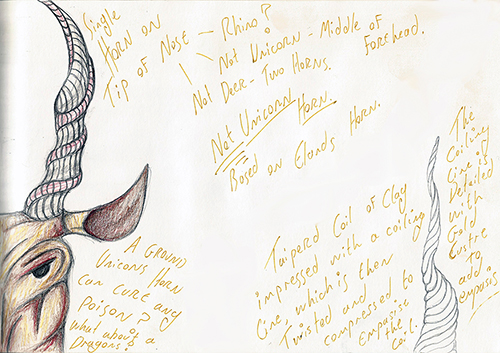 Single
Horn on
Tip of Nose — Rhino?
Not Unicorn - Middle of
Forehead.
Not Deer - Two Horns.
Not Unicorn Horn.
Based on Elands Horn.
The
Coiling
Line is
Detailed
with
Gold
Lustre
to
add
empasis
Taiperd Coil of Clay
impressed with a coiling
Line which is then
Twisted and
compressed to
Empasise
the
coil.
A Ground
Unicorns Horn
can cure any
Poison?
What about a
Dragons?